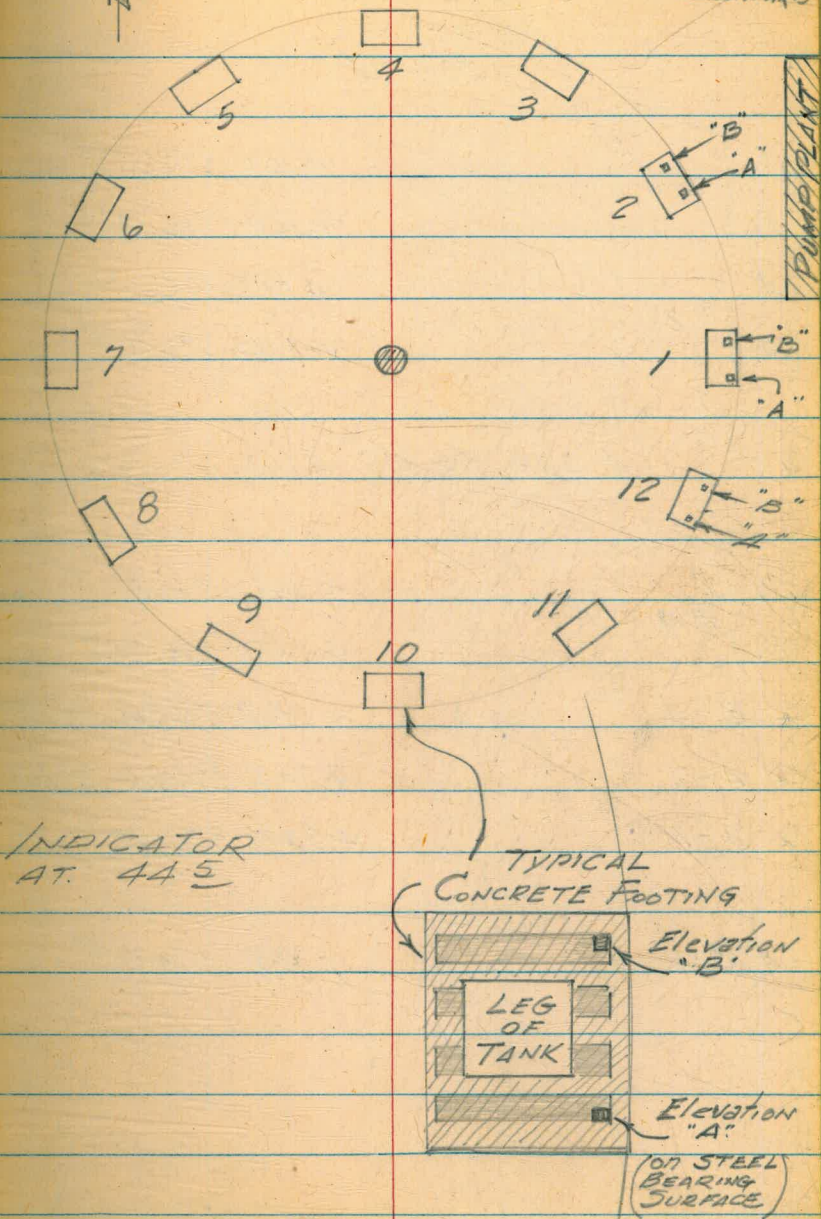 4
3
5
"B"
"A"
2
PUMP PLANT
6
"B"
7
1
"A"
12
"B"
"A"
8
9
11
10
INDICATOR
AT. 44 5
TYPICAL
CONCRETE FOOTING
Elevation
"B"
LEG
OF
TANK
Elevation
"A"
(on STEEL
BEARING
SURFACE)